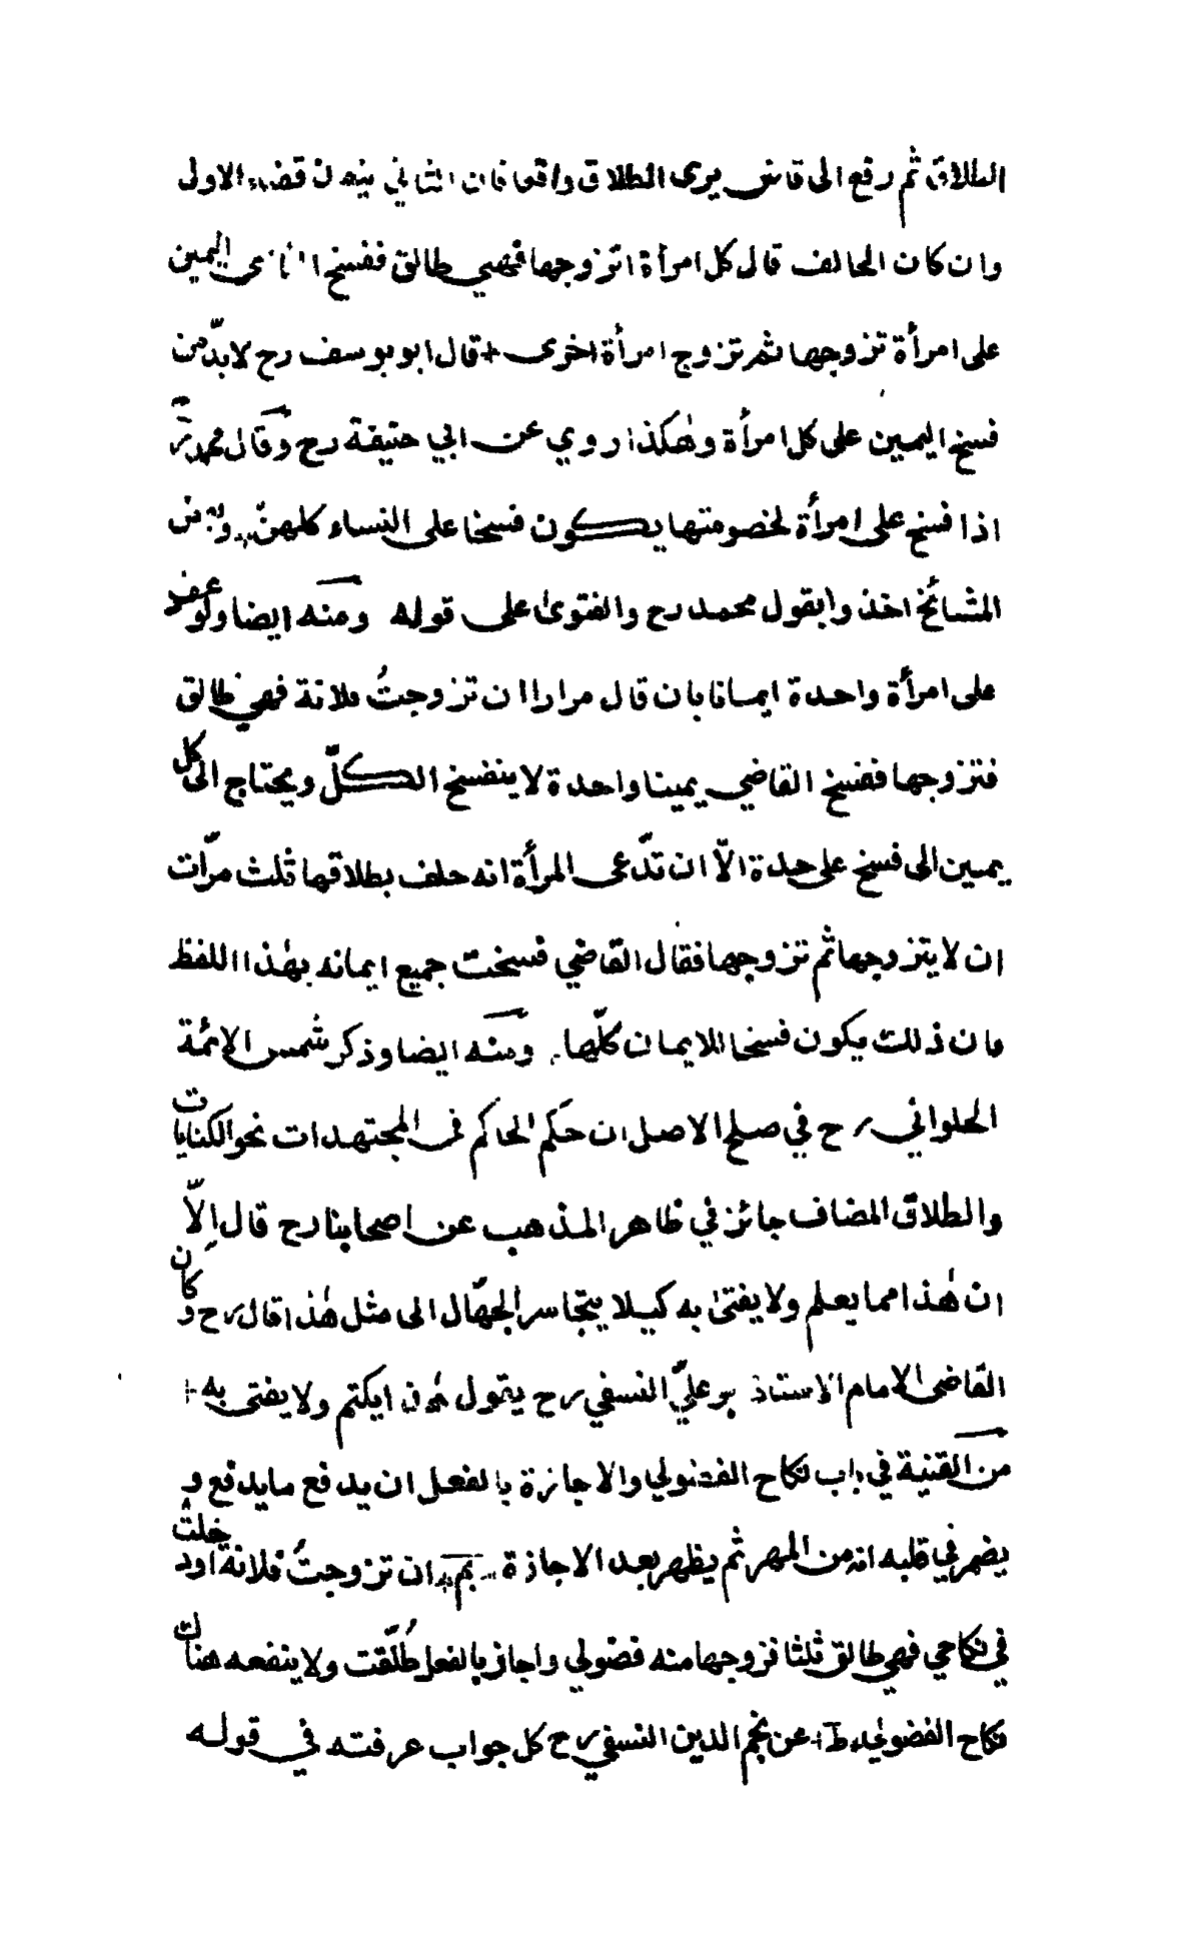 الطلاق ثم رفع الى قاض يرى الطلاق واقعا فان الثاني ينفذ قضاء الاول
وان كان الحالف قال كل امرأة اتزوجها فهي طالق ففسخ اليمين
على امرأة تزوجها ثم تزوج امرأة اخرى + قال ابو يوسف رح لابدّ من
فسخ اليمين على كل امرأة وهٰكذا روي عن ابي حنيفة رح وقال محمد رح
اذا فسخ على امرأة لخصومتها يكون فسخا على النساء كلهنّ وبعض
المشائخ اخذوا بقول محمد رح والفتوىٰ على قوله ومنه ايضا ولو عقد
على امرأة واحدة ايمانا بان قال مرارا ان تزوجتُ فلانة فهي طالق
فتزوجها ففسخ القاضي يمينا واحدة لا ينفسخ الكلّ ويحتاج الى كل
يمين الى فسخ على حدة الّا ان تدّعى المرأة انه حلف بطلاقها ثلث مرّات
ان لا يتزوجها ثم تزوجها فقال القاضي فسخت جميع ايمانه بهٰذا اللفظ
فان ذلك يكون فسخا للايمان كلّها. ومنه ايضا وذكر شمس الائمة
الحلواني رح في صلح الاصل ان حكم الحاكم فى المجتهدات نحو الكنايات
والطلاق المضاف جائز في ظاهر المذهب عن اصحابنا رح قال الّا
ان هٰذا مما يعلم ولا يفتىٰ به كيلا يتجاسر الجهّال الى مثل هٰذا قال رح وكان
القاضى الامام الاستاذ بو عليّ النسفي رح يقول هٰذا يكتم ولا يفتى به +
من القنية في باب نكاح الفضولي والاجازة بالفعل ان يدفع ما يدفع و
يضمر في قلبه انه من المهر ثم يظهر بعد الاجازة بم ان تزوجتُ فلانة او دخلت
في نكاحي فهي طالق ثلثا فزوجها منه فضولي واجاز بالفعل طُلّقت ولا ينفعه هناك
نكاح الفضولي ط عن نجم الدين النسفي رح كل جواب عرفته في قوله